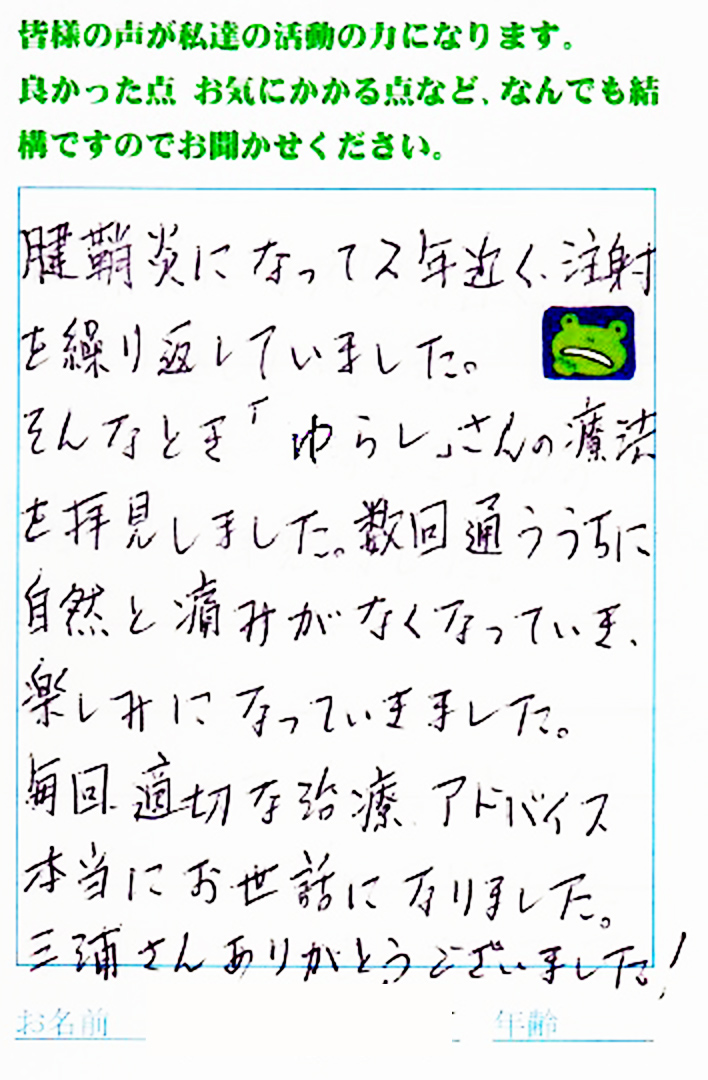 皆様の声が私達の活動の力になります。
良かった点 お気にかかる点など、なんでも結
構ですのでお聞かせください。
腱鞘炎になって2年近く、注射
を繰り返していました。
そんなとき「ゆらし」さんの療法
を拝見しました。数回通ううちに
自然と痛みがなくなっていき、
楽しみになっていきました。
毎回、適切な治療、アドバイス
本当にお世話になりました。
三浦さんありがとうございました!
お名前 年齢